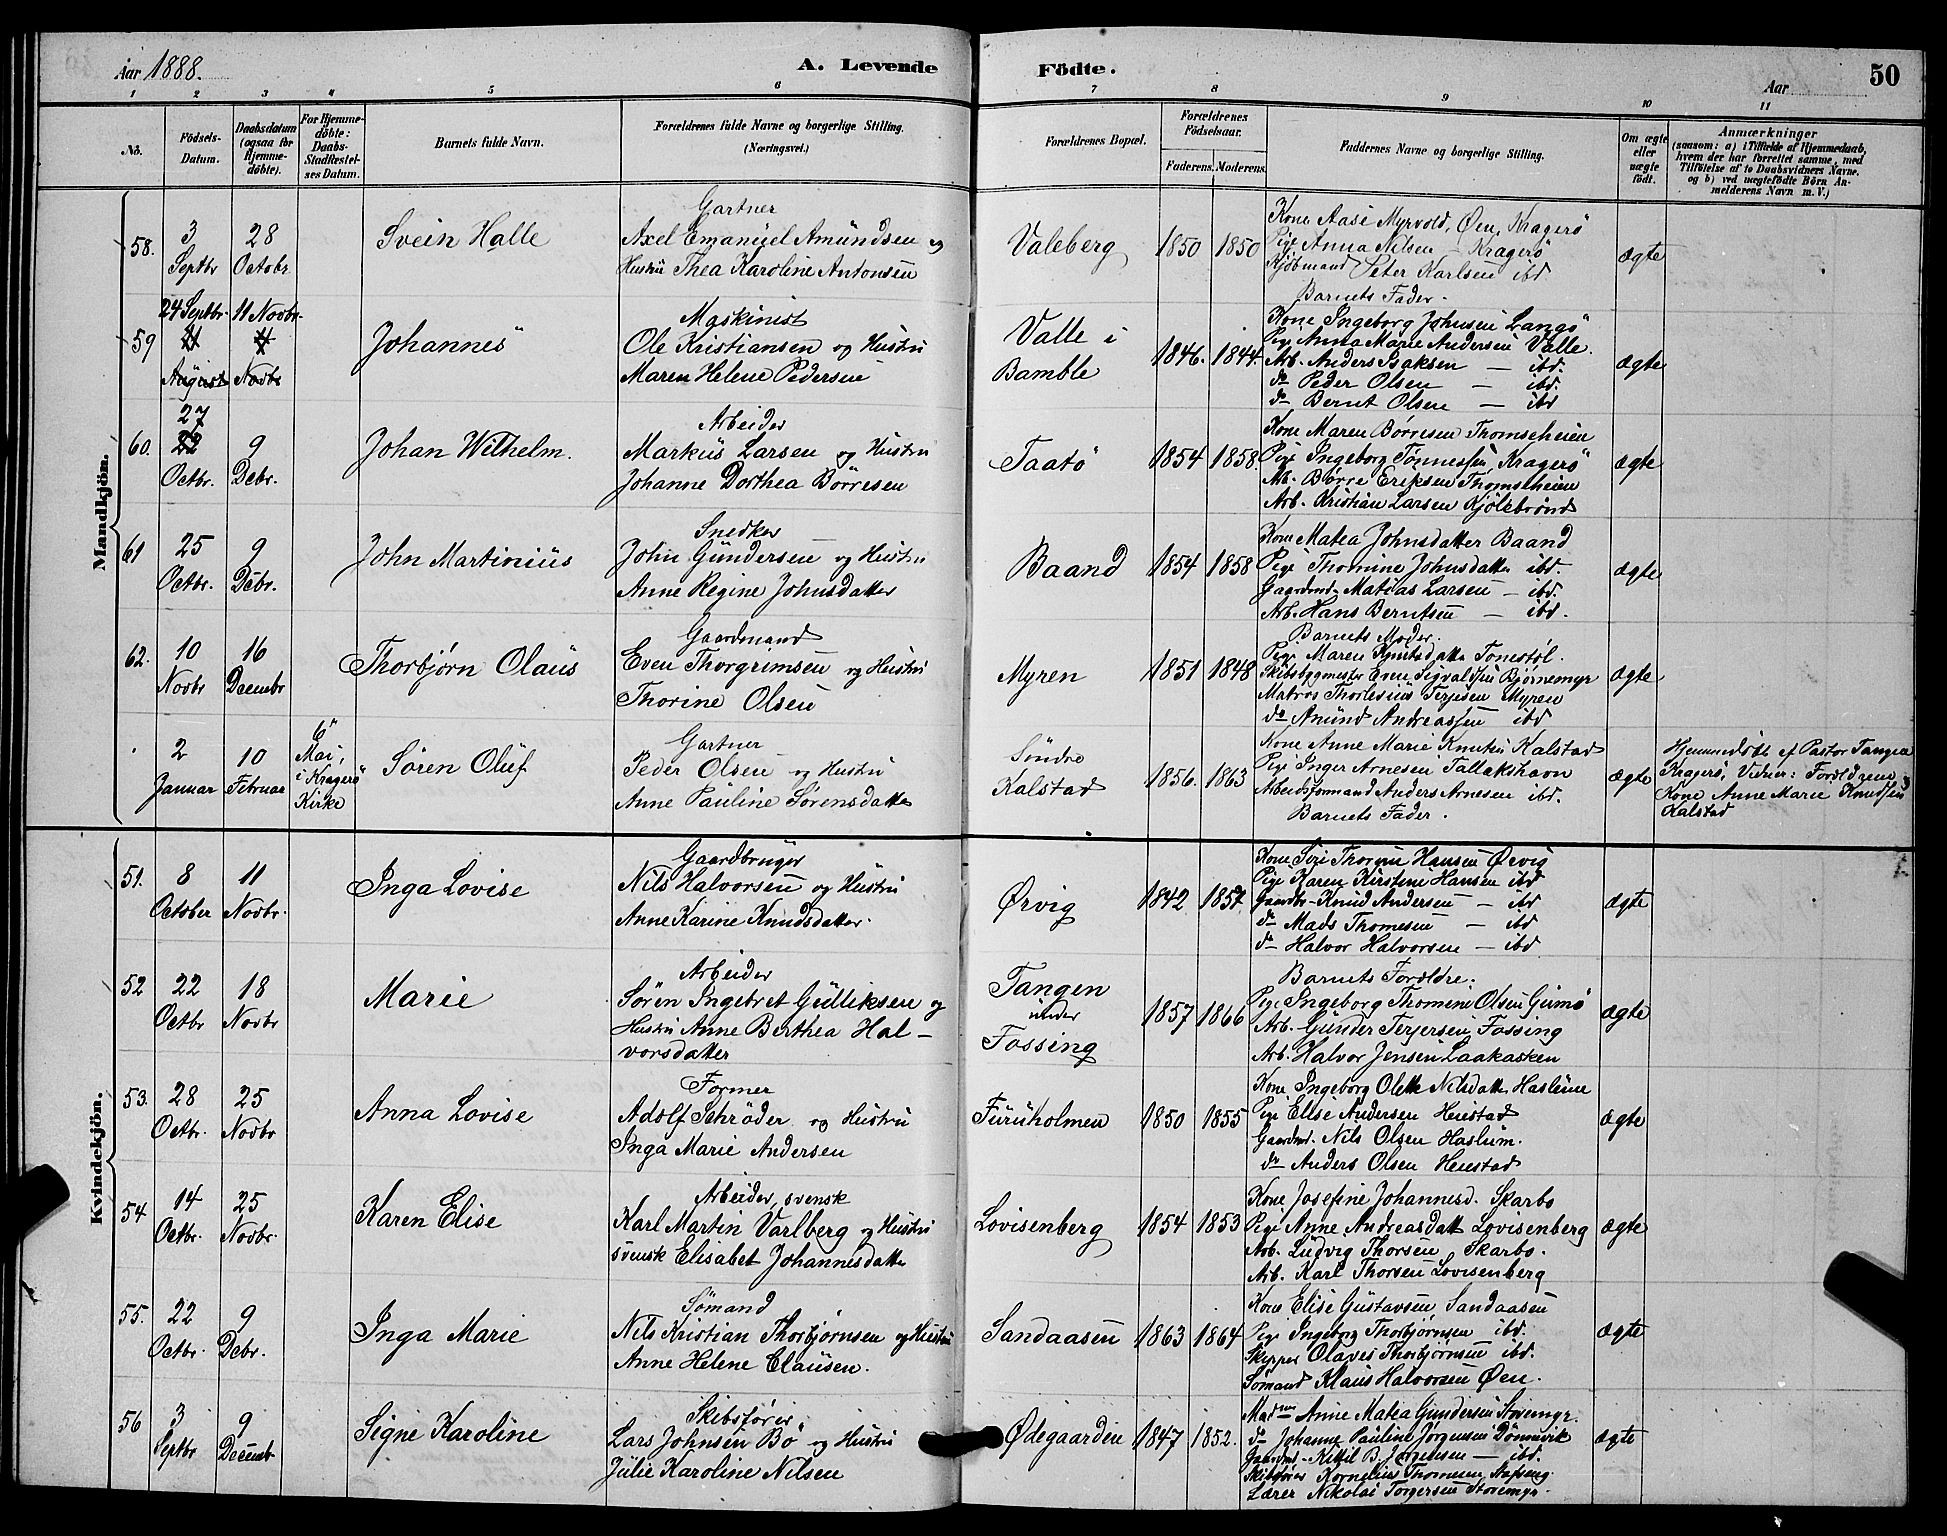 Aar 1888.
A. Levende Födte.
Aar
50
1 2 3 4 5 6 7 8 9 10 11
No.
Födsels-
Datum.
Daabsdatum
(ogsaa for
Hjemme-
döbte).
For Hjemme-
döbte:
Daabs-
Stadfæstel-
ses Datum.
Barnets fulde Navn.
Forældrenes fulde Navne og borgerlige Stilling.
(Næringsvei.)
Forældrenes Bopæl.
Forældrenes
Födselsaar.
Faderens. Moderens.
Faddernes Navne og borgerlige Stilling.
Om ægte
eller
uægte
födt.
Anmærkninger
(saasom: a) i Tilfælde af Hjemmedaab,
hvem der har forrettet samme, med
Tilföielse af to Daabsvidners Navne.
og b) ved uægtefödte Börn An-
melderens Navn m. V.)
Mandkjön.
58.
3
Septbr
28
Octobr.
Svein Halle
Gartner
Axel Emanuel Amundsen og
Hustru Thea Karoline Antonsen
Valeberg
1850 1850
Kone Aase Myrvold, Øen, Kragerö
Pige Anna Nilsen - Kragerö
Kjöbmand Peter Karlsen ibd
Barnets Fader.
ægte
59
24 Septbr.
11
August
11 Novbr.
4
Novbr
Johannes
Maskinist
Ole Kristiansen og Hustru
Maren Helene Pedersen
Valle i
Bamble
1846. 1844.
Kone Ingeborg Johnsen Langö
Pige Anna Marie Andersen Valle.
Arb. Anders Isaksen — ibd.
do Peder Olsen — ibd.
do Bernt Olsen — ibd
ægte
60.
27
22
Octbr.
9
Debr.
Johan Wilhelm.
Arbeider
Markus Larsen og Hustru
Johanne Dorthea Börresen
Taatö
1854 1858.
Kone Maren Börresen Thomseheien
Pige Ingeborg Tönnessen, Kragerö
Arb. Börre Eriksen Thomseheien
Arb. Kristian Larsen Kjölebrönd
ægte
61
25
Octbr.
9
Debr.
John Martinius
Snedker
John Gundersen og Hustru
Anne Regine Johnsdatter
Baand
1854 1858
Kone Matea Johnsdatter Baand
Pige Thomine Johnsdatter ibd.
Gaardmd. Matias Larsen — ibd.
Arb. Hans Berntsen — ibd.
ægte
62.
10
Novbr
16
Decembr
Thorbjørn Olaus
Gaardmand
Even Thorgrimsen og Hustru
Thorine Olsen
Myren
1851 1848
Barnets Moder.
Pige Maren Knutsdatter Tonestöl.
Skibsbygmester Even Sigvaldsen Bjørnemyr
Matros Thorleius Terjesen Myren
do Amund Andreassen ibd
ægte
2
Januar
10
Februar
6
Mai,
i Kragerö
Kirke
Sören Oluf
Gartner
Peder Olsen og Hustru
Anne Pauline Sörensdatter
Söndre
Kalstad
1856. 1863
Kone Anne Marie Knutsen Kalstad
Pige Inger Arnesen Tallakshavn
Arbeidsformand Anders Arnesen ibd.
Barnets Fader.
ægte
Hjemmedöbt af Pastor Tangen
Kragerö, Vidner: Forældrene,
Kone Anne Marie Knudsen
Kalstad
Kvindekjön.
51.
8
October
11
Novbr.
Inga Lovise
Gaardbruger
Nils Halvorsen og Hustru
Anne Karine Knudsdatter.
Ørvig
1842 1857.
Kone Siri Thorine Hansen Ørvig
Pige Karen Kirstine Hansen ibd
Gaardbr- Knud Andersen — ibd
do Mads Thomesen — ibd
do Halvor Halvorsen — ibd
ægte
52
22
Octbr
18
Novbr
Marie
Arbeider
Sören Ingebret Gulliksen og
Hustru Anne Berthea Hal-
vorsdatter
Tangen
under
Fossing
1857 1866
Barnets Forældre.
Pige Ingeborg Thomine Olsen Gumö
Arb. Gunder Terjersen Fossing
Arb. Halvor Jensen Laakasken
ægte
53.
28
Octbr.
25
Novbr
Anna Lovise
Former
Adolf Schröder og Hustru
Inga Marie Andersen
Furuholmen
1850 1855
Kone Ingeborg Olette Nilsdatter Haslum
Pige Ellse Andersen Heiestad
Gaardmd. Nils Olsen Haslum.
do Anders Olsen Heiestad
ægte
54
14
Octbr.
25
Novbr.
Karen Elise
Arbeider, svensk
Karl Martin Varlberg og Hustru
svensk Elisabet Johannesdatter
Lovisenberg
1854 1853
Kone Josefine Johannesd. Skarbo
Pige Anne Andreasdatt Lovisenberg
Arb. Ludvig Thorsen Skarbo.
Arb. Karl Thorsen Lovisenberg
ægte
55.
22
Octbr.
9
Debr.
Inga Marie
Sömand
Nils Kristian Thorbjörnsen og Hustru
Anne Helene Clausen.
Sandaasen
1863 1864
Kone Elise Gustavsen Sandaasen
Pige Ingeborg Thorbjörnsen ibd.
Skipper Olaves Thorbjörnsen ibd.
Sömand Klaus Halvorsen Øen.
ægte
56
3
Septbr
9
Decembr
Signe Karoline
Skibsförer
Lars Johnsen Bö og Hustru
Julie Karoline Nilsen
Ødegaarden
1847 1852.
Madm Anne Matea Gundersen Storemyr.
do Johanne Pauline Jørgensen Dønnevik
Gaardmd- Kittil B. Jørgensen — ibd.
Skibsförer Kornelius Thomesen
Lærer Nikolai Torgersen Storemyr.
ægte